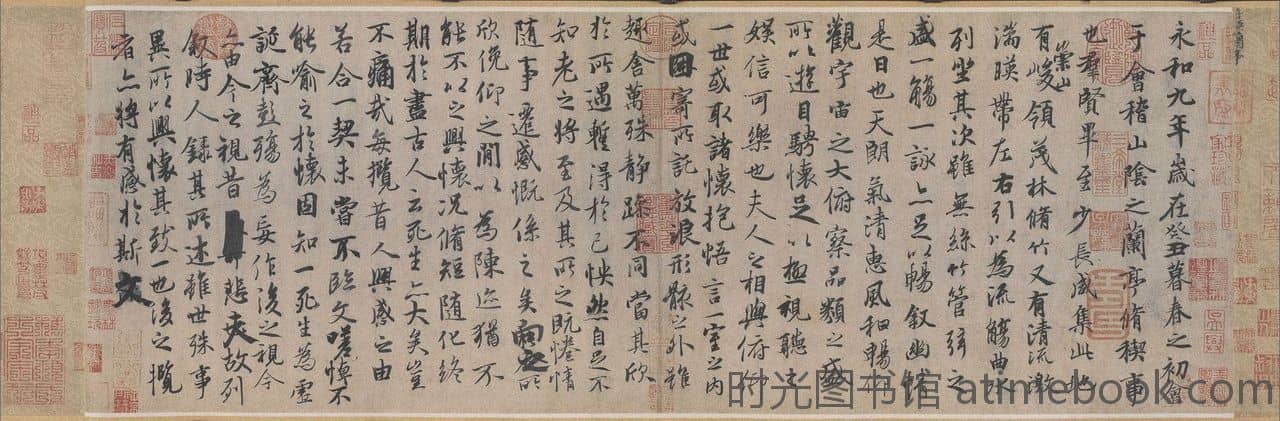 永和九年歲在癸丑暮春之初會
于會稽山陰之蘭亭脩稧事
也羣賢畢至少長咸集此地
有崇山峻領茂林脩竹又有清流激
湍暎帶左右引以為流觴曲水
列坐其次雖無絲竹管弦之
盛一觴一詠亦足以暢敘幽情
是日也天朗氣清惠風和暢仰
觀宇宙之大俯察品類之盛
所以遊目騁懷足以極視聽之
娛信可樂也夫人之相與俯仰
一世或取諸懷抱悟言一室之內
或因寄所託放浪形骸之外雖
趣舍萬殊靜躁不同當其欣
於所遇暫得於己怏然自足不
知老之將至及其所之既惓情
隨事遷感慨係之矣向之所
欣俛仰之閒以為陳迹猶不
能不以之興懷況脩短隨化終
期於盡古人云死生亦大矣豈
不痛哉每攬昔人興感之由
若合一契未嘗不臨文嗟悼不
能喻之於懷固知一死生為虛
誕齊彭殤為妄作後之視今
亦由今之視昔悲夫故列
敘時人錄其所述雖世殊事
異所以興懷其致一也後之攬
者亦將有感於斯文
时光图书馆 atimebook.com